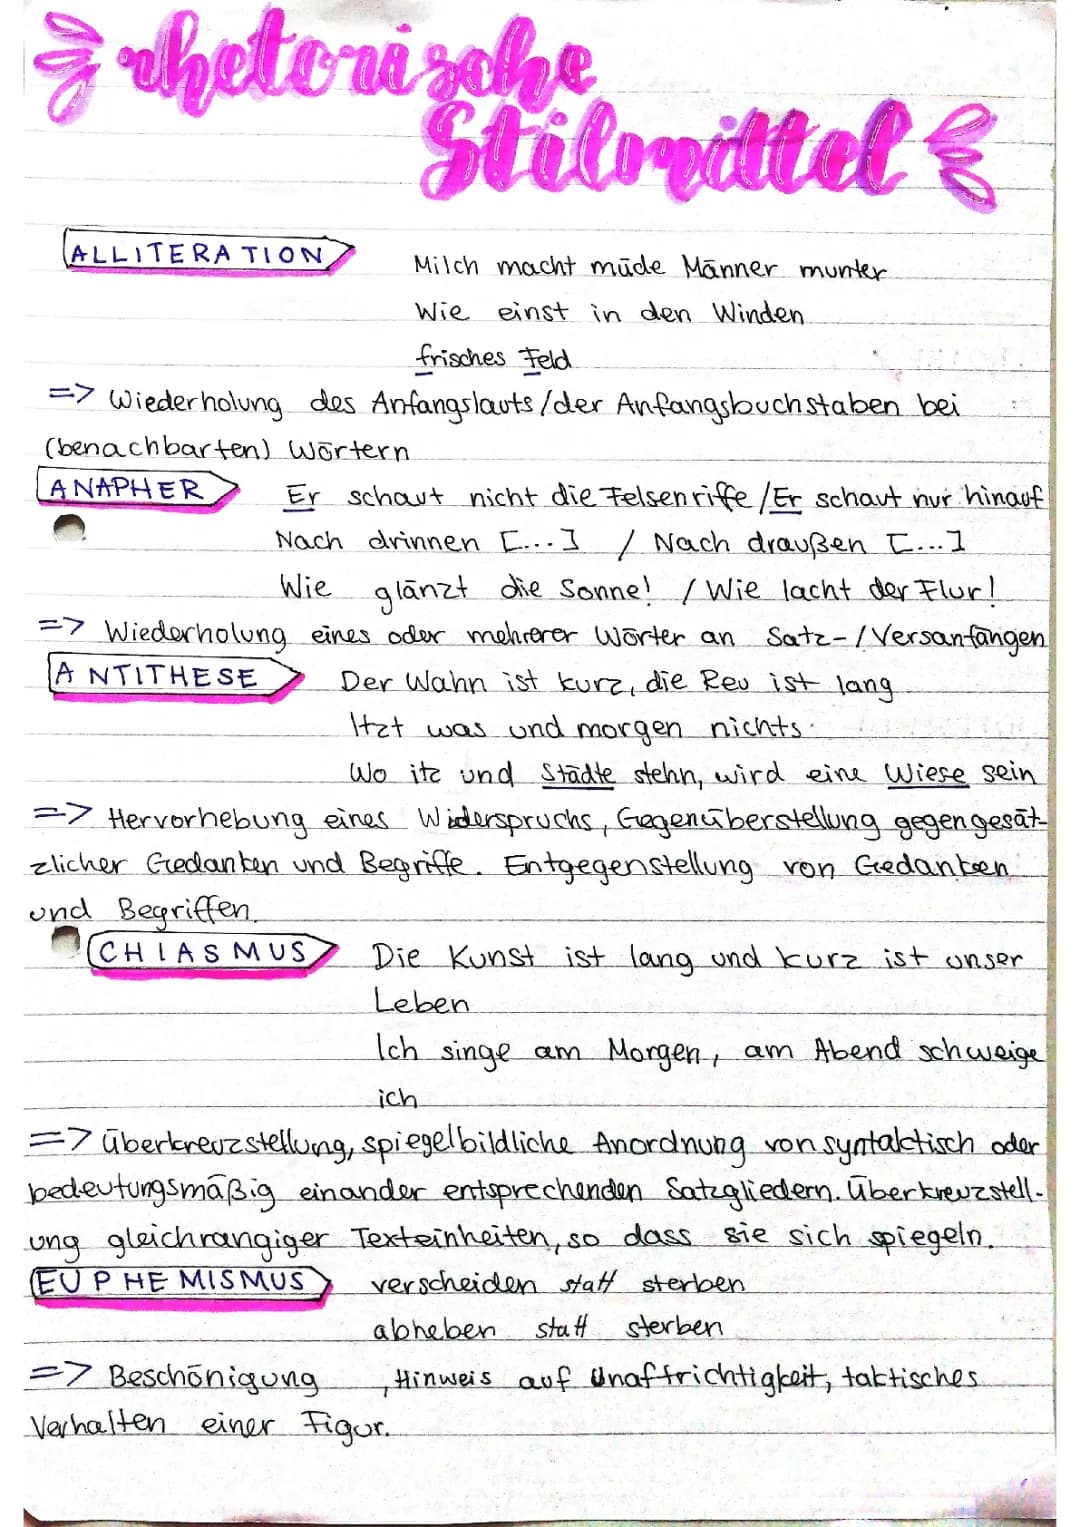 rhetorische
Stilmittel
ALLITERATION
Milch macht müde Männer munter
Wie einst in den Winden
frisches Feld
=> Wiederholung des Anfangslauts/der Anfangsbuchstaben bei
(benachbarten) Wörtern
ANAPHER
Er schaut nicht die Felsenriffe/Er schaut nur hinauf
Nach drinnen [...] / Nach draußen [...]
Wie glänzt die Sonne! / Wie lacht der Flur!
=> Wiederholung eines oder mehrerer Wörter an Satz-/Versanfängen
ANTITHESE
Der Wahn ist kurz, die Reu ist lang
Itzt was und morgen nichts.
Wo itz und Städte stehn, wird eine Wiese sein
=> Hervorhebung eines Widerspruchs, Gegenüberstellung gegengesät-
zlicher Gedanken und Begriffe. Entgegenstellung von Gedanken
und Begriffen.
CHIASMUS
Die Kunst ist lang und kurz ist unser
Leben
Ich singe am Morgen, am Abend schweige
ich
=> Überkreuzstellung, spiegelbildliche Anordnung von syntaktisch oder
bedeutungsmäßig einander entsprechenden Satzgliedern. Überkreuzstell-
ung gleichrangiger Texteinheiten, so dass sie sich spiegeln.
EUPHEMISMUS
verscheiden statt sterben
abheben statt sterben
=> Beschönigung , Hinweis auf Unaffrichtigkeit, taktisches
Verhalten einer Figur.